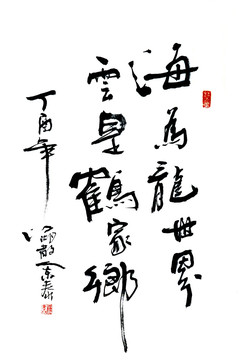 海為龍世界
雲是鶴家鄉
丁酉年